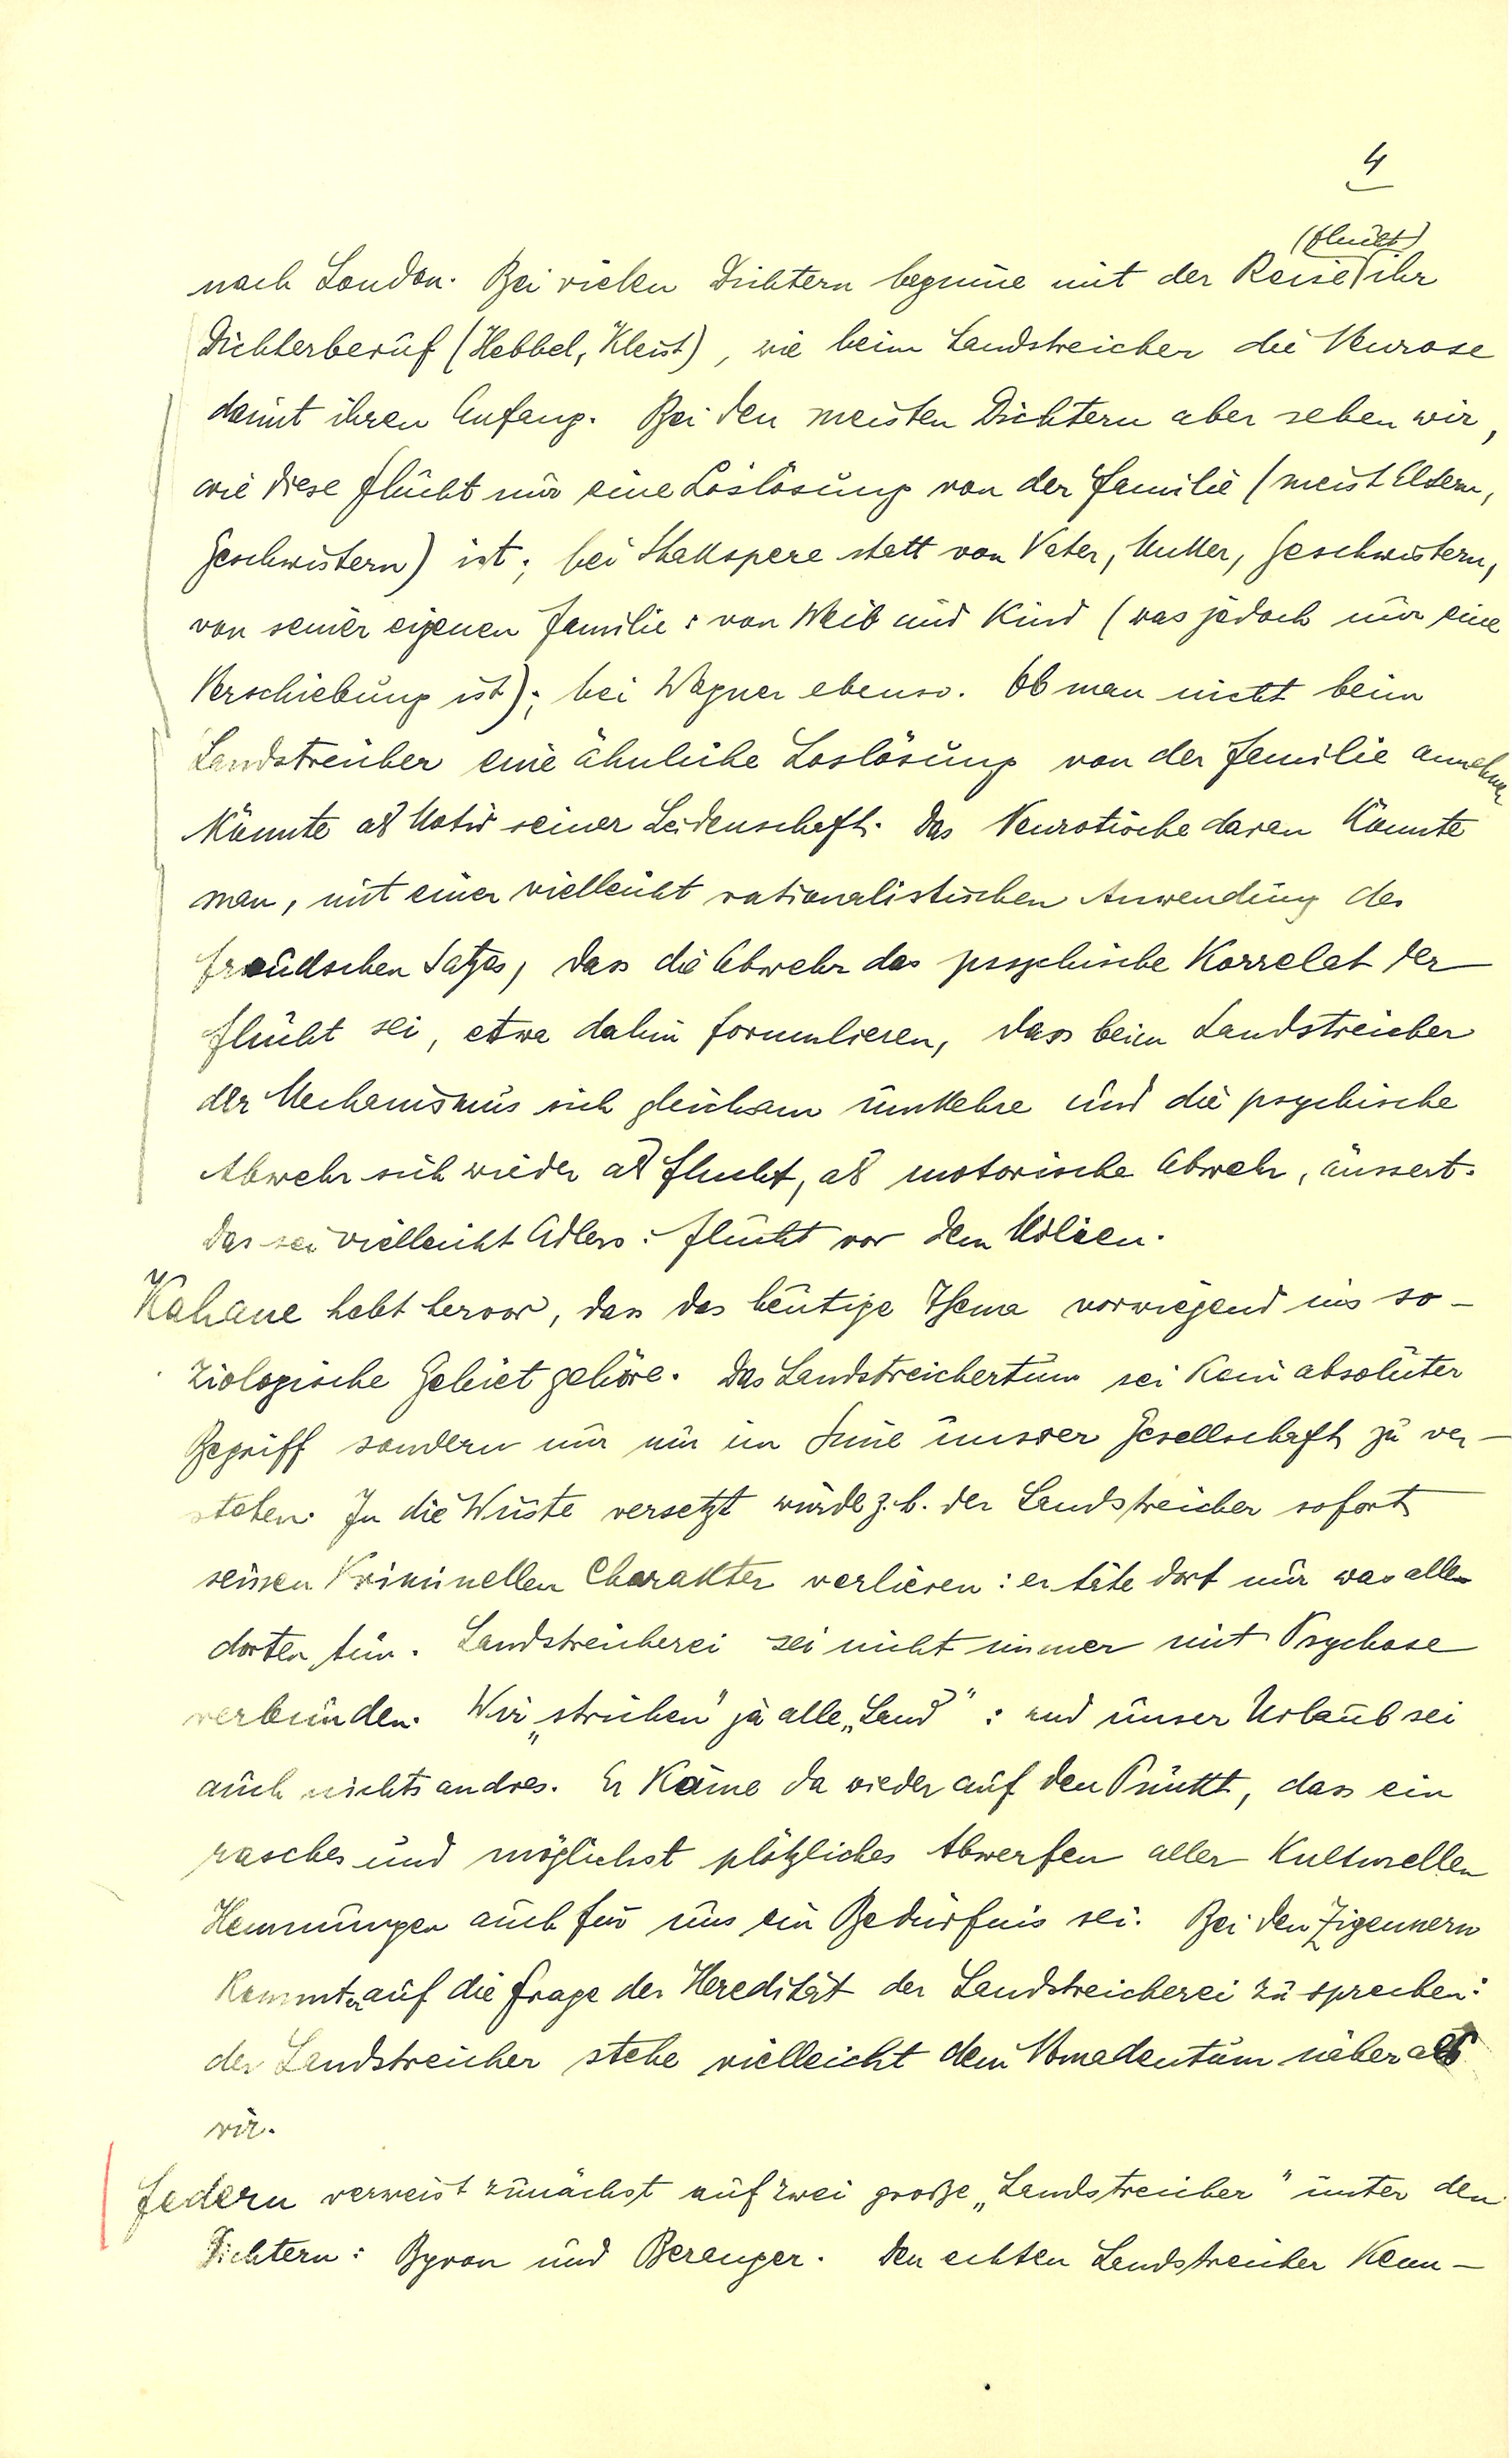 4
(Flucht)
nach London. Bei vielen Dichtern beginne mit der Reise ihr
Dichterberuf (Hebbel, Kleist), wie beim Landstreicher die Neurose
damit ihren Anfang. Bei den meisten Dichtern aber sehen wir,
wie diese Flucht nur eine Loslösung von der Familie (meist Eltern,
Geschwistern) ist; bei Shakspere statt von Vater, Mutter, Geschwistern,
von seiner eigenen Familie: von Weib und Kind (was jedoch nur eine
Verschiebung ist); bei Wagner ebenso. Ob man nicht beim
Landstreicher eine ähnliche Loslösung von der Familie annehmen
könnte als Motiv seiner Leidenschaft. Das Neurotische daran könnte
man, mit einer vielleicht rationalistischen Anwendung des
freudschen Satzes, dass die Abwehr das psychische Korrelat der
Flucht sei, etwa dahin formulieren, dass beim Landstreicher
der Mechanismus sich gleichsam umkehre und die psychische
Abwehr sich wieder als Flucht, als motorische Abwehr, äussert.
Das sei vielleicht Adlers: Flucht vor dem Milieu.
Kahane hebt hervor, dass das heutige Thema vorwiegend ins so-
ziologische Gebiet gehöre. Das Landstreichertum sei kein absoluter
Begriff sondern nur nur im Sinne unsrer Gesellschaft zu ver-
stehen. In die Wüste versetzt würde z. b. der Landstreicher sofort
seinen kriminellen Charakter verlieren: er täte dort nur was alle
dorten tun. Landstreicherei sei nicht immer mit Psychose
verbunden. Wir „strichen" ja alle „Land": und unser Urlaub sei
auch nichts andres. Er käme da wieder auf den Punkt, dass ein
rasches und möglichst plötzliches Abwerfen aller kulturellen
Hemmungen auch für uns ein Bedürfnis sei. Bei den Zigeunern
kommt er auf die Frage der Heredität der Landstreicherei zu sprechen:
der Landstreicher stehe vielleicht dem Nomadentum näher als
wir.
Federn verweist zunächst auf zwei große „Landstreicher" unter den
Dichtern: Byron und Beranger. Den echten Landstreicher kenn-